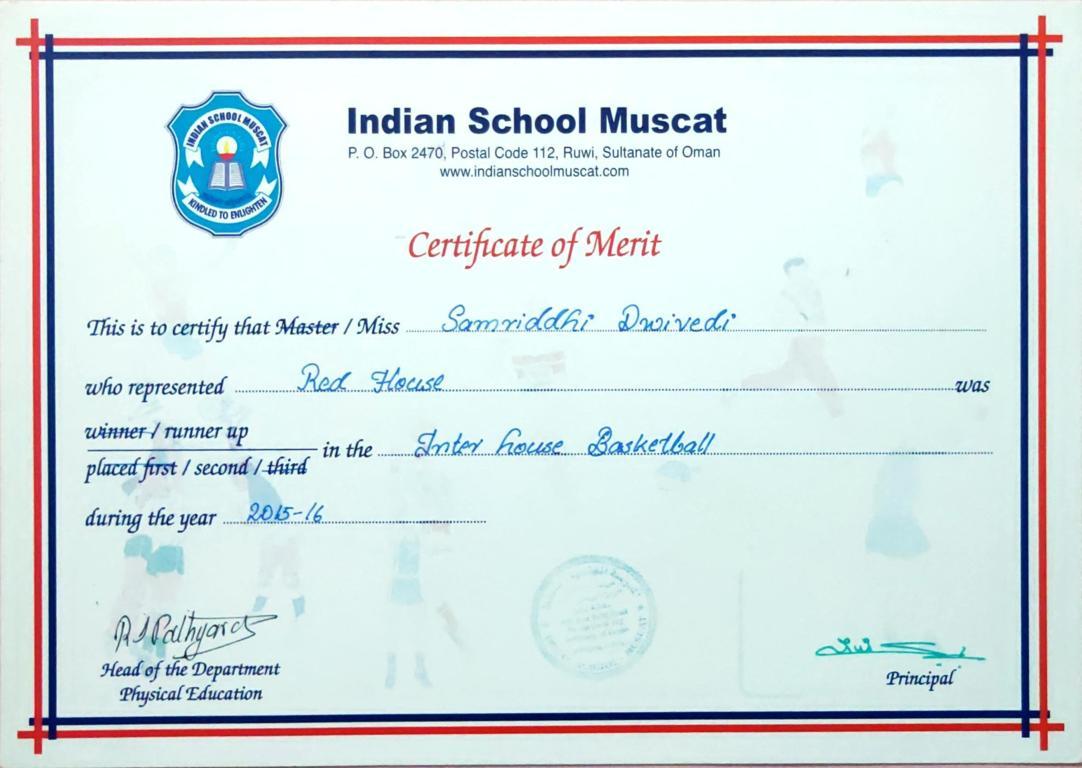 INDIAN SCHOOL MUSCAT
KINDLED TO ENLIGHTEN
Indian School Muscat
P. O. Box 2470, Postal Code 112, Ruwi, Sultanate of Oman
www.indianschoolmuscat.com
Certificate of Merit
This is to certify that Master / Miss Samriddhi Dwivedi
who represented Red House was
winner / runner up
placed first / second / third in the Inter house Basketball
during the year 2015-16
Head of the Department
Physical Education
Principal
MUSCAT